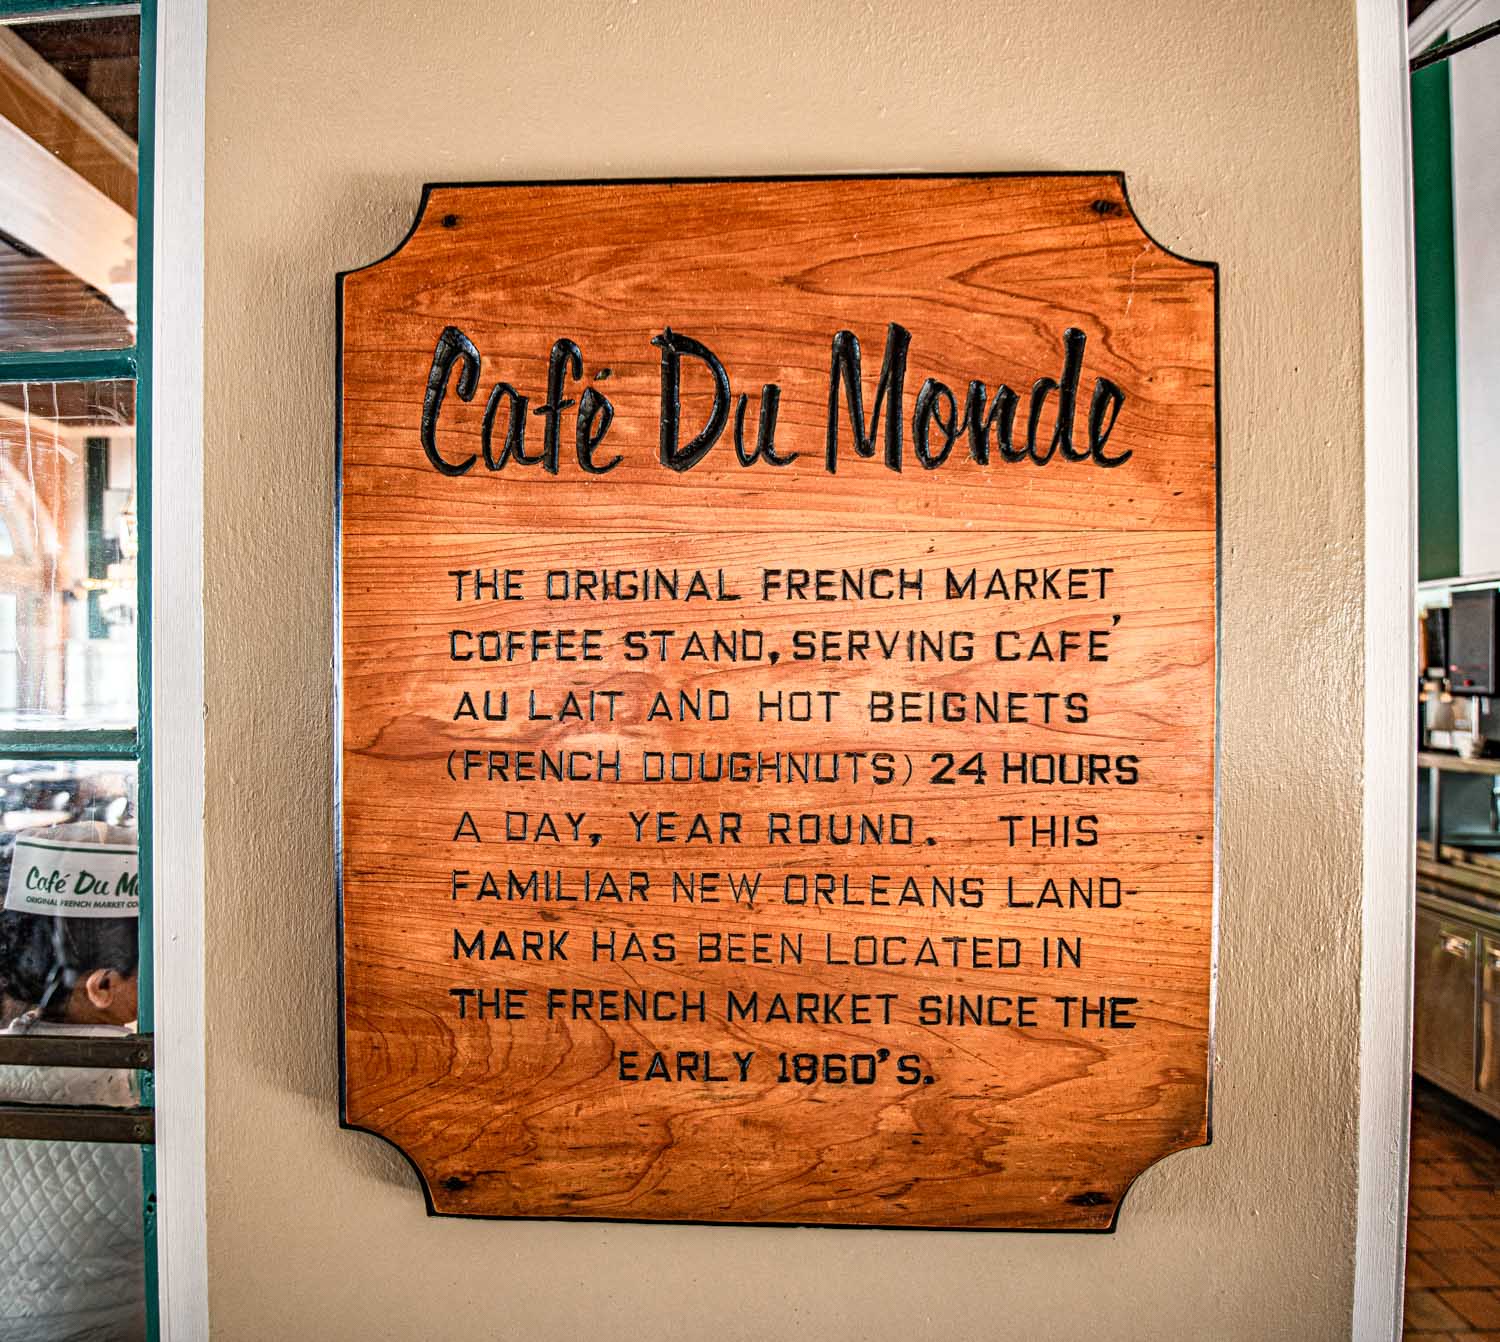 Café Du Monde
THE ORIGINAL FRENCH MARKET
COFFEE STAND, SERVING CAFÉ
AU LAIT AND HOT BEIGNETS
(FRENCH DOUGHNUTS) 24 HOURS
A DAY, YEAR ROUND. THIS
FAMILIAR NEW ORLEANS LAND-
MARK HAS BEEN LOCATED IN
THE FRENCH MARKET SINCE THE
EARLY 1860'S.
Café Du
ORIGINAL FRENCH MARKET